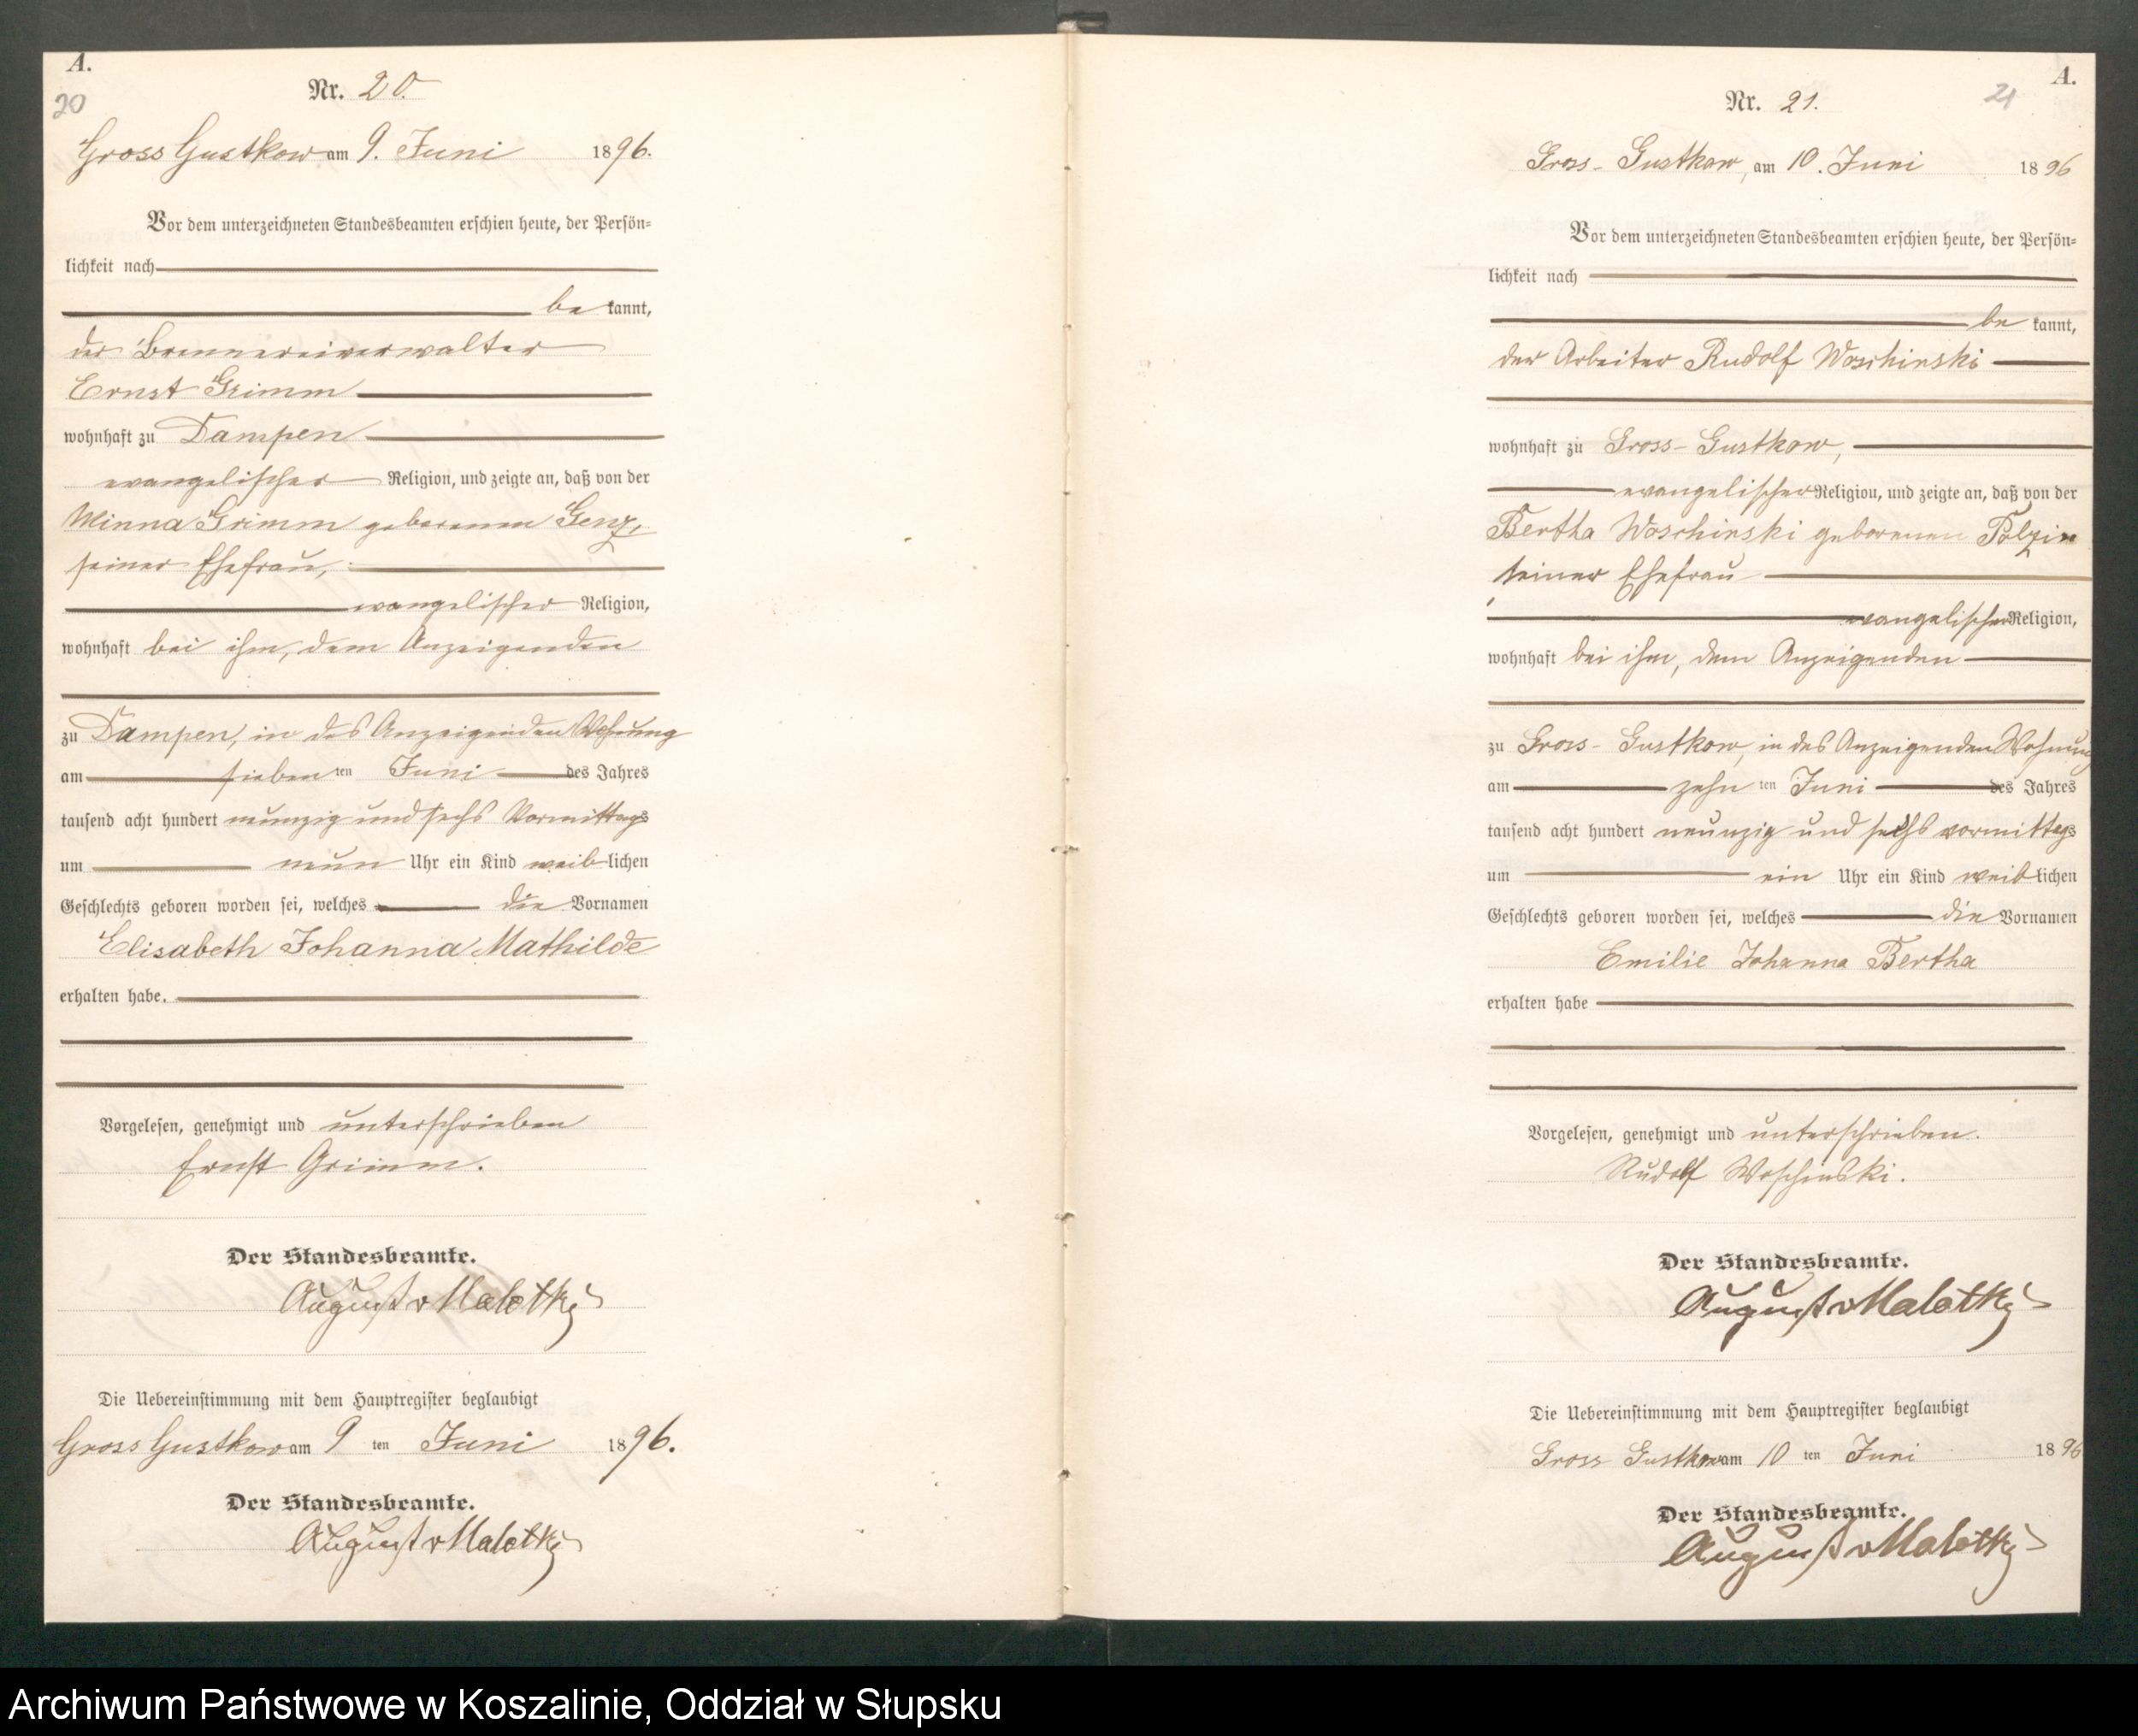 A.
20
Nr. 20.
Gross Gustkow am 9. Juni 1896.
Vor dem unterzeichneten Standesbeamten erschien heute, der Persön=
lichkeit nach
be kannt,
der Brennereiverwalter
Ernst Grimm
wohnhaft zu Dampen
evangelischer Religion, und zeigte an, daß von der
Minna Grimm geborenen Genz,
seiner Ehefrau,
evangelischer Religion,
wohnhaft bei ihm, dem Anzeigenden
zu Dampen, in des Anzeigenden Wohnung
am sieben ten Juni des Jahres
tausend acht hundert neunzig und sechs Vormittags
um neun Uhr ein Kind weib lichen
Geschlechts geboren worden sei, welches die Vornamen
Elisabeth Johanna Mathilde
erhalten habe.
Vorgelesen, genehmigt und unterschrieben
Ernst Grimm.
Der Standesbeamte.
August v Malotky
Die Uebereinstimmung mit dem Hauptregister beglaubigt
Gross Gustkow am 9 ten Juni 1896.
Der Standesbeamte.
August v Malotky
A.
21
Nr. 21.
Gross-Gustkow, am 10. Juni 1896
Vor dem unterzeichneten Standesbeamten erschien heute, der Persön=
lichkeit nach
be kannt,
der Arbeiter Rudolf Woschinski
wohnhaft zu Gross-Gustkow,
evangelischer Religion, und zeigte an, daß von der
Bertha Woschinski geborenen Polzin
seiner Ehefrau
evangelischer Religion,
wohnhaft bei ihm, dem Anzeigenden
zu Gross-Gustkow, in des Anzeigenden Wohnung
am zehn ten Juni des Jahres
tausend acht hundert neunzig und sechs vormittags
um ein Uhr ein Kind weib lichen
Geschlechts geboren worden sei, welches die Vornamen
Emilie Johanna Bertha
erhalten habe
Vorgelesen, genehmigt und unterschrieben.
Rudolf Woschinski.
Der Standesbeamte.
August v Malotky
Die Uebereinstimmung mit dem Hauptregister beglaubigt
Gross Gustkow am 10 ten Juni 1896
Der Standesbeamte.
August v Malotky
Archiwum Państwowe w Koszalinie, Oddział w Słupsku